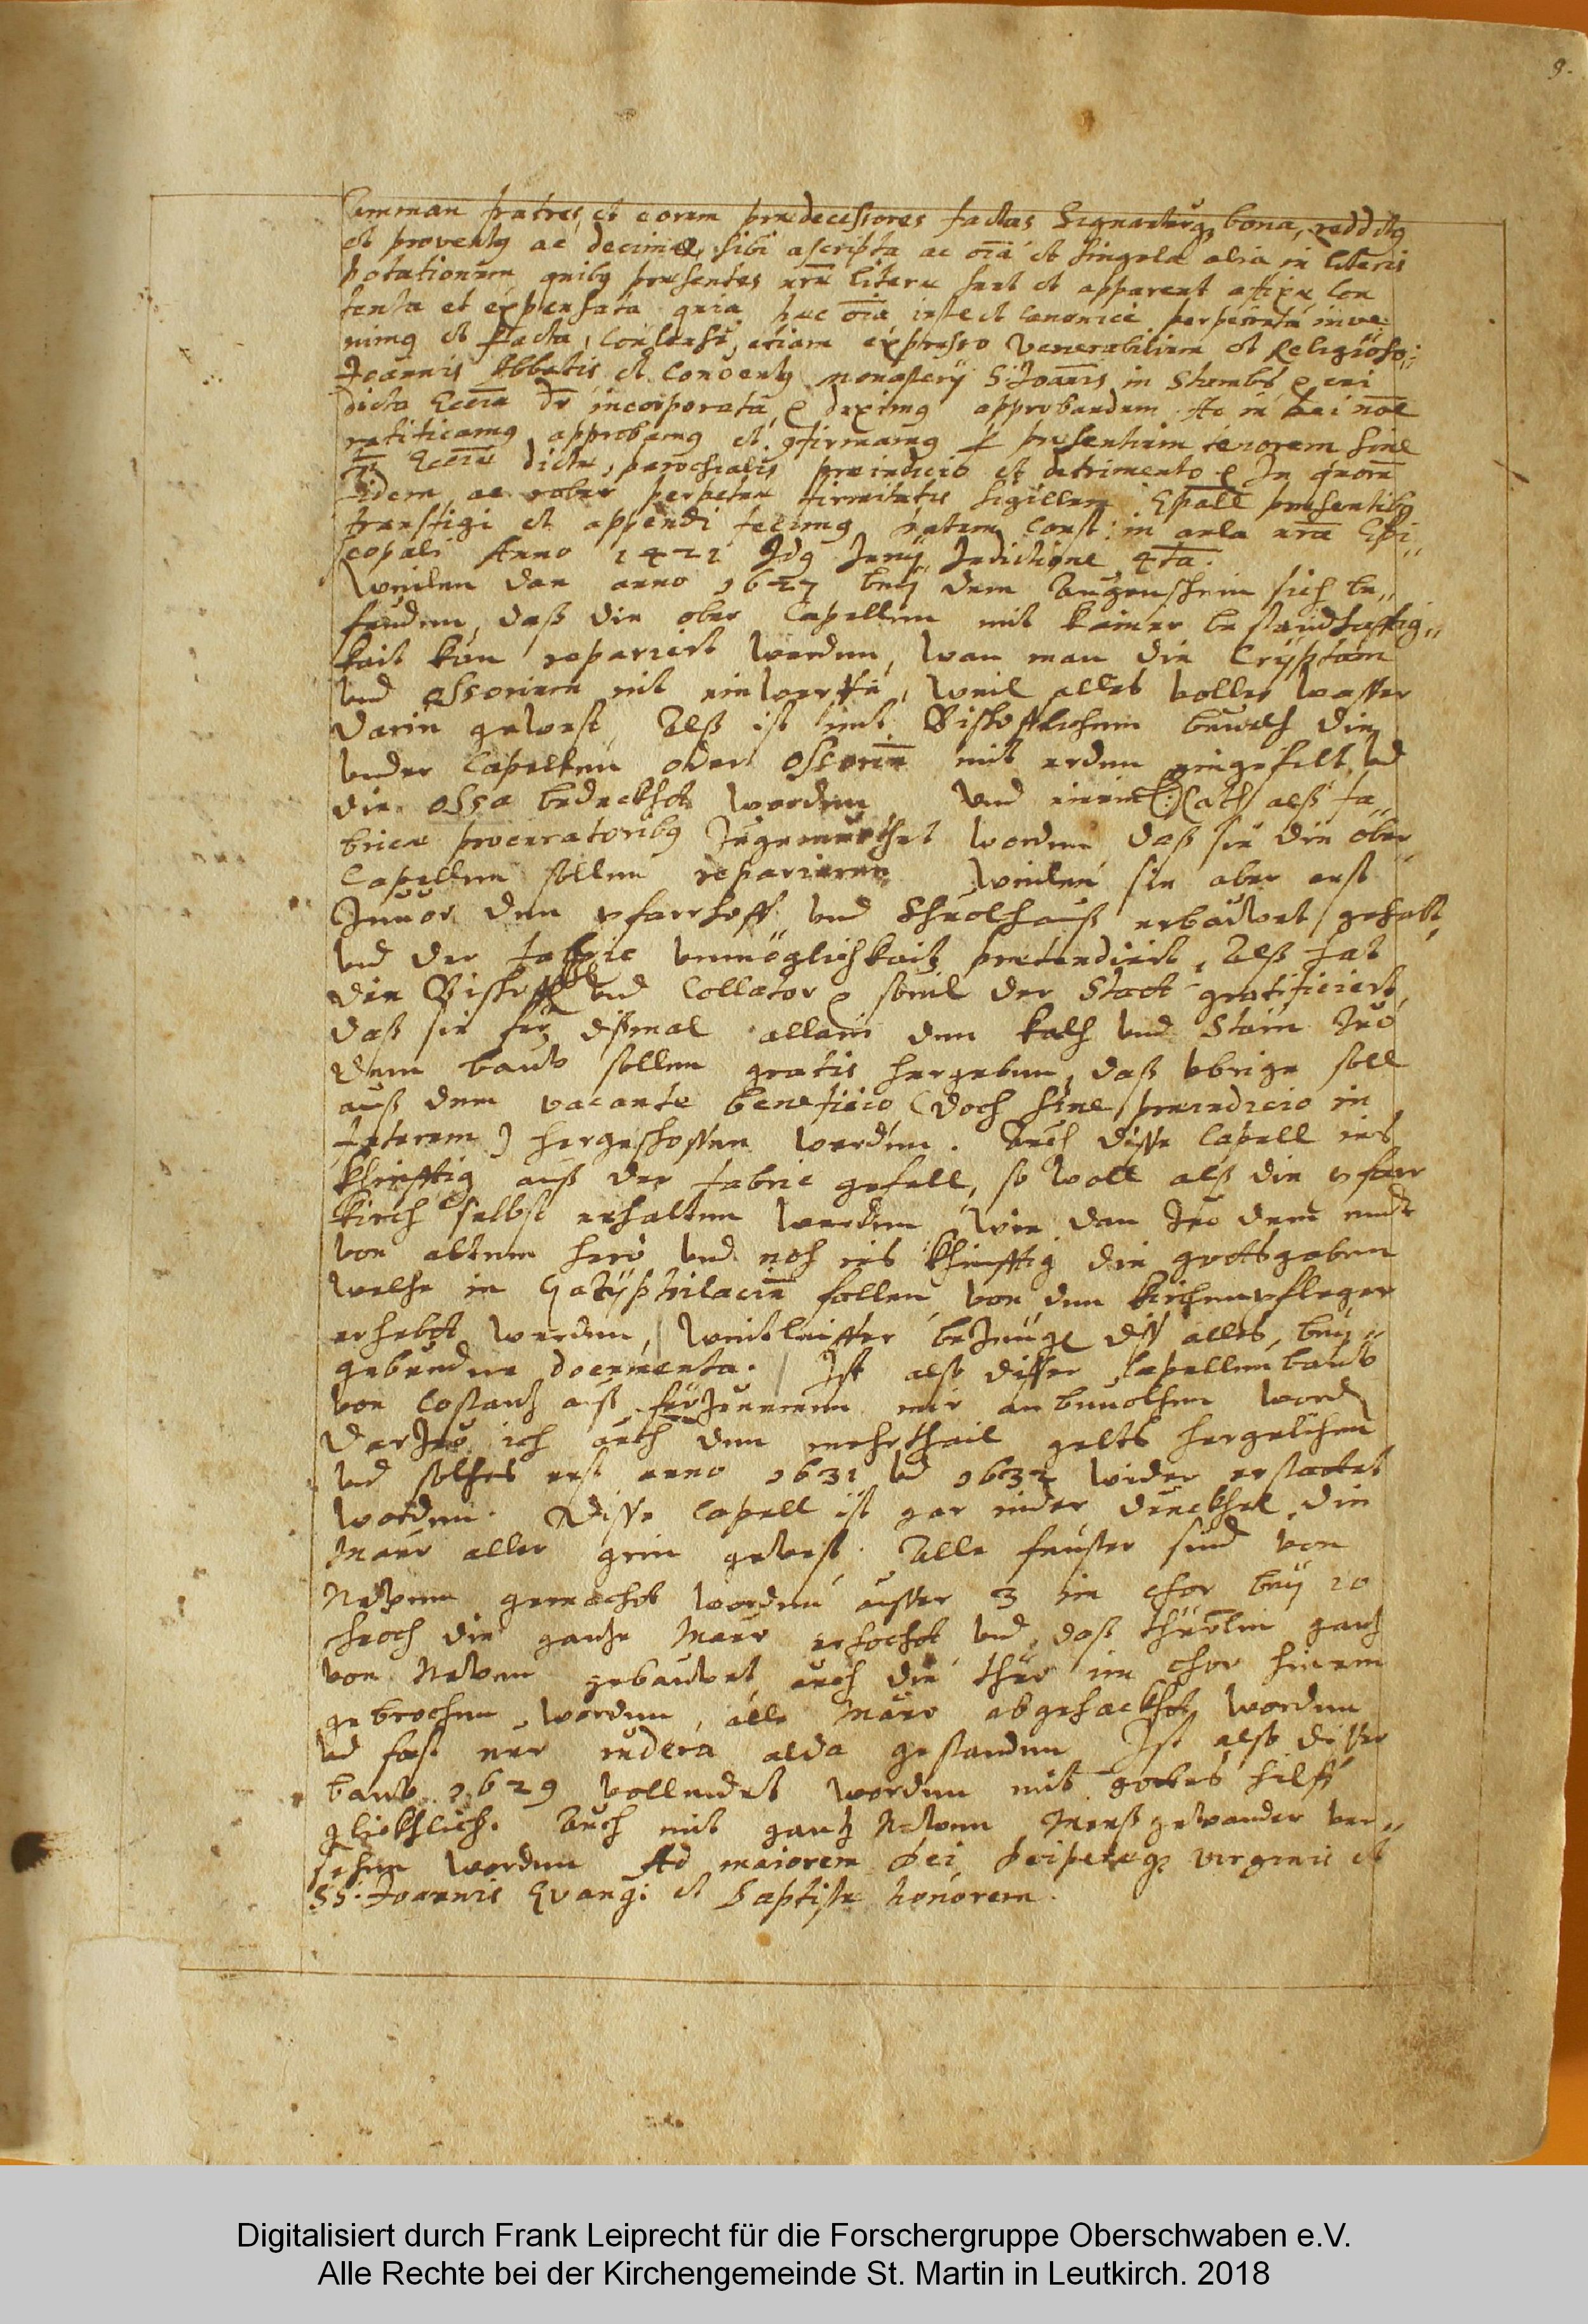 9.
Amman fratres, et eorum praedecessores factas Signaturas, bona, redditus
et proventus ac decimae sibi ascripta ac oīa et singula alia in literis
potationum quibus praesentes nrae literae sunt et apparent affixae Con
tenta et expensata quia haec oīa iuste et Canonice perpetrata inve
nimus et facta, Consensu, etiam expresso Venerabilium et Religioso:
Joannis Abbatis et Conventus monasterij S. Joānis in Stambs cui
dicta Eccīa incorporata duximus approbandum Ac in Dei noīe
ratificamus approbamus et confirmamus praesentium tenorem Sine
tn̄ Eccīae dictae, parochialis praeiudicio et detrimento In quorum
fidem ac robur perpetuae firmitatis Sigillum Epāle praesentibus
transfigi et appendi fecimus Datum Const: in aula nrā Epi„
copali Anno 1421 Idus Junij Indictione 4ta.
Weilen dan anno 1627 beÿ dem Augenschein sich be„
funden, daß die ober Capellen mit kainer bestandhafftig„
kait kan repariert werden, wan man die Crÿptam
und ossorium nit einwerffe, weil alles voller wasser
darin gewest, Alß ist mit Bischofflichem bevelch die
under Capellen oder ossoriū mit erden eingefilt, und
die ossa bedeckht worden und einem E: Rath alß fa„
bricae procuratoribus zugemuethet worden daß sie die ober
Capellen sollen reparieren Weilen sie aber erst
zuuor den pfarrhoff und Schuolhauß erbauwet gehabt,
und der fabric unmöglichkait praetendiert, Alß hat
der Bischoff und Collator sovil der Statt gratificiert,
daß sie für dißmal allain den kalch und Stain zuo
dem bauw sollen gratis hergeben, daß vbrige soll
auß dem vacante beneficio (doch sine praeiudicio in
futurum) hergeschossen werden. Auch disse Capell ins
khinfftig auß der fabric gefell, so woll alß die pfarr
kirch selbst erhalten werden wie dan zuo dem ende
von altem hero und noch ins khinfftig die gottsgaben
welche in Gazÿphilaciū fallen von den kirchenpfleger
erhebt werden, weitleiffer bezeugt diß alles, beÿ„
gebundne documenta. Ist also disser Capellen bauw
von Costanz auß fürzunemen mir anbevolhen word
Darzuo ich auch den mehrthail gelts hergelichen
und solches erst anno 1631 und 1632 wider erstattet
worden. Disse Capell ist gar nider dunckhel die
Maur aller grien gewest. Alle fenster sind von
Newem gemacht worden ausser 3 im chor beÿ 10
schuoch die ganze Maur erhöcht und daß thürlin ganz
von Newem gebauwet auch die thür im chor hinein
gebrochen worden, alle Maur abgehackht worden
und fast nur rudera alda gestanden Ist also disser
bauw 1629 vollendet worden mit gottes hilff
glickhlich. Auch mit ganz Newen Messgewander ver„
sehen worden Ad maiorem Dei Deiparaeque virginis et
SS. Joannis Evangi: et Baptistae honorem.
Digitalisiert durch Frank Leiprecht für die Forschergruppe Oberschwaben e.V.
Alle Rechte bei der Kirchengemeinde St. Martin in Leutkirch. 2018